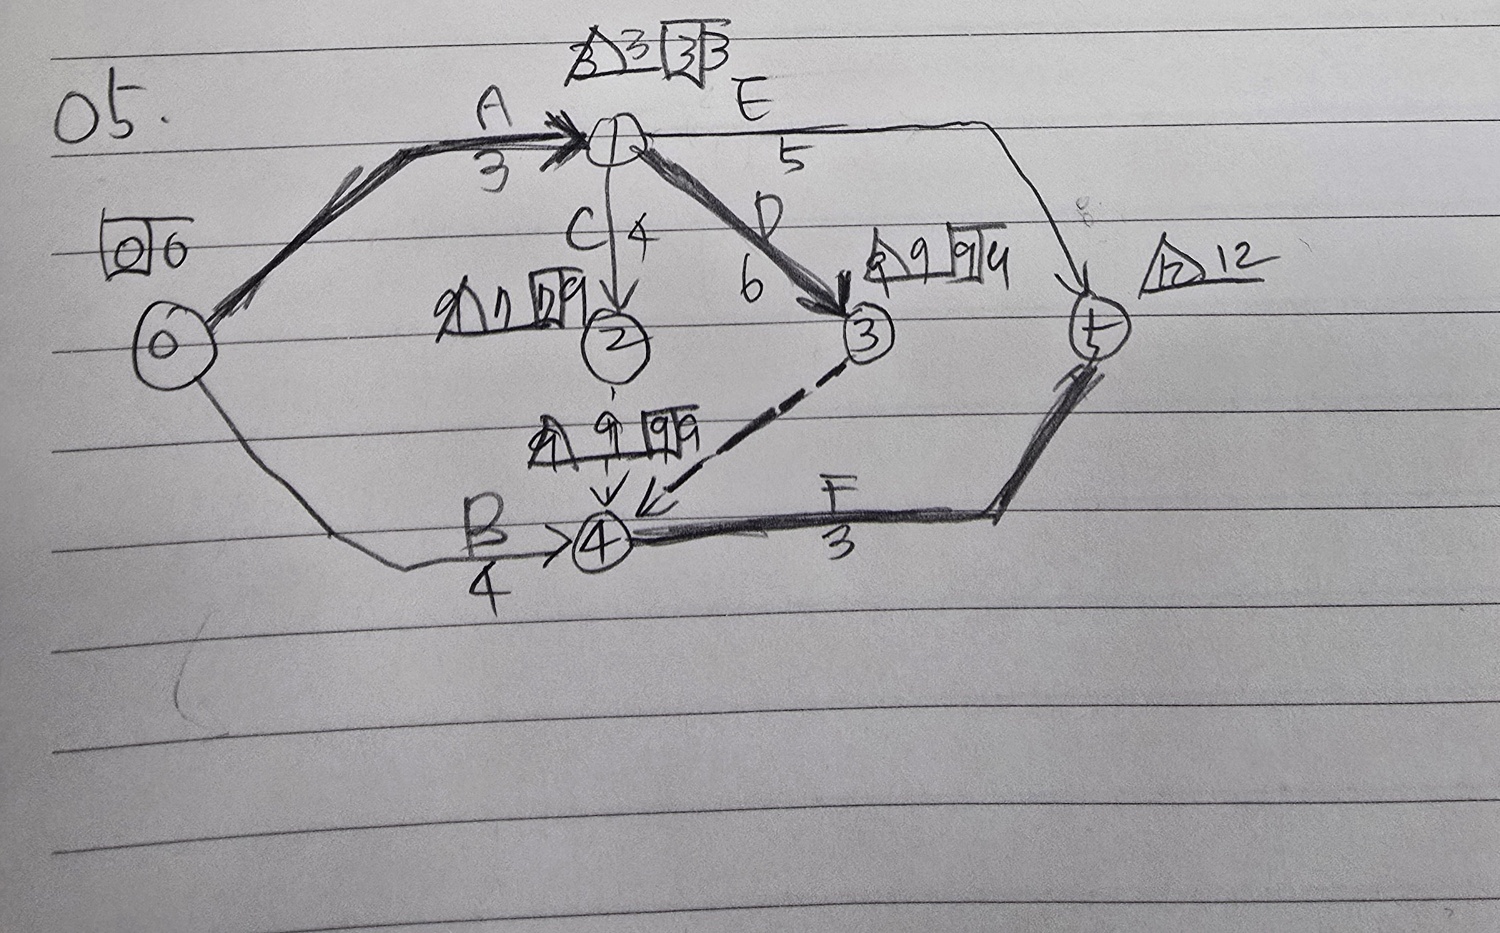 05.
3 3 3 3
A
E
3
5
0 0
C 4
D
6
9 9 9 9
12 12
9 7 7 9
0
1
2
3
5
9 9 9 9
B
4
4
F
3